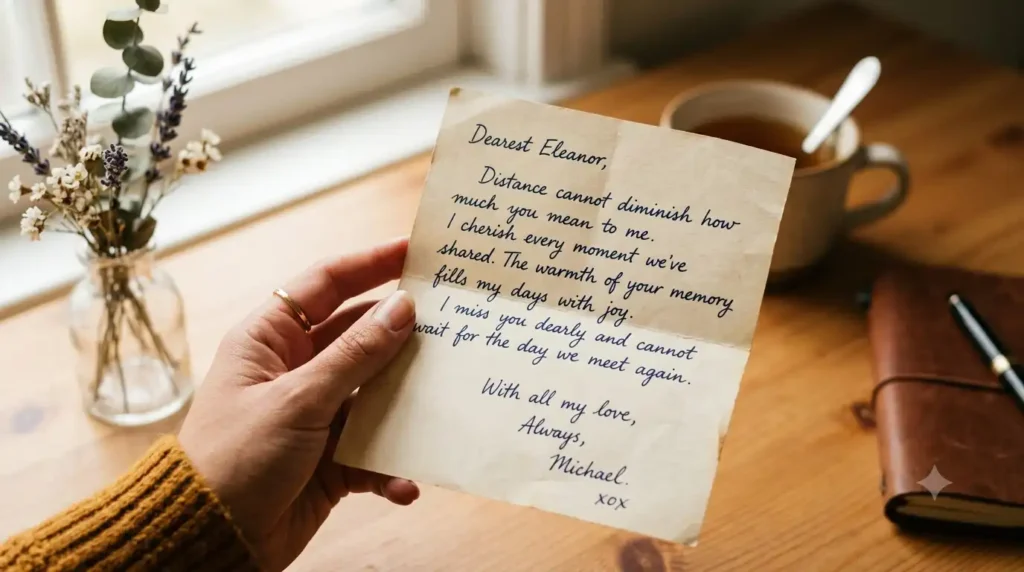 Dearest Eleanor,
Distance cannot diminish how
much you mean to me.
I cherish every moment we've
shared. The warmth of your memory
fills my days with joy.
I miss you dearly and cannot
wait for the day we meet again.
With all my love,
Always,
Michael.
xox